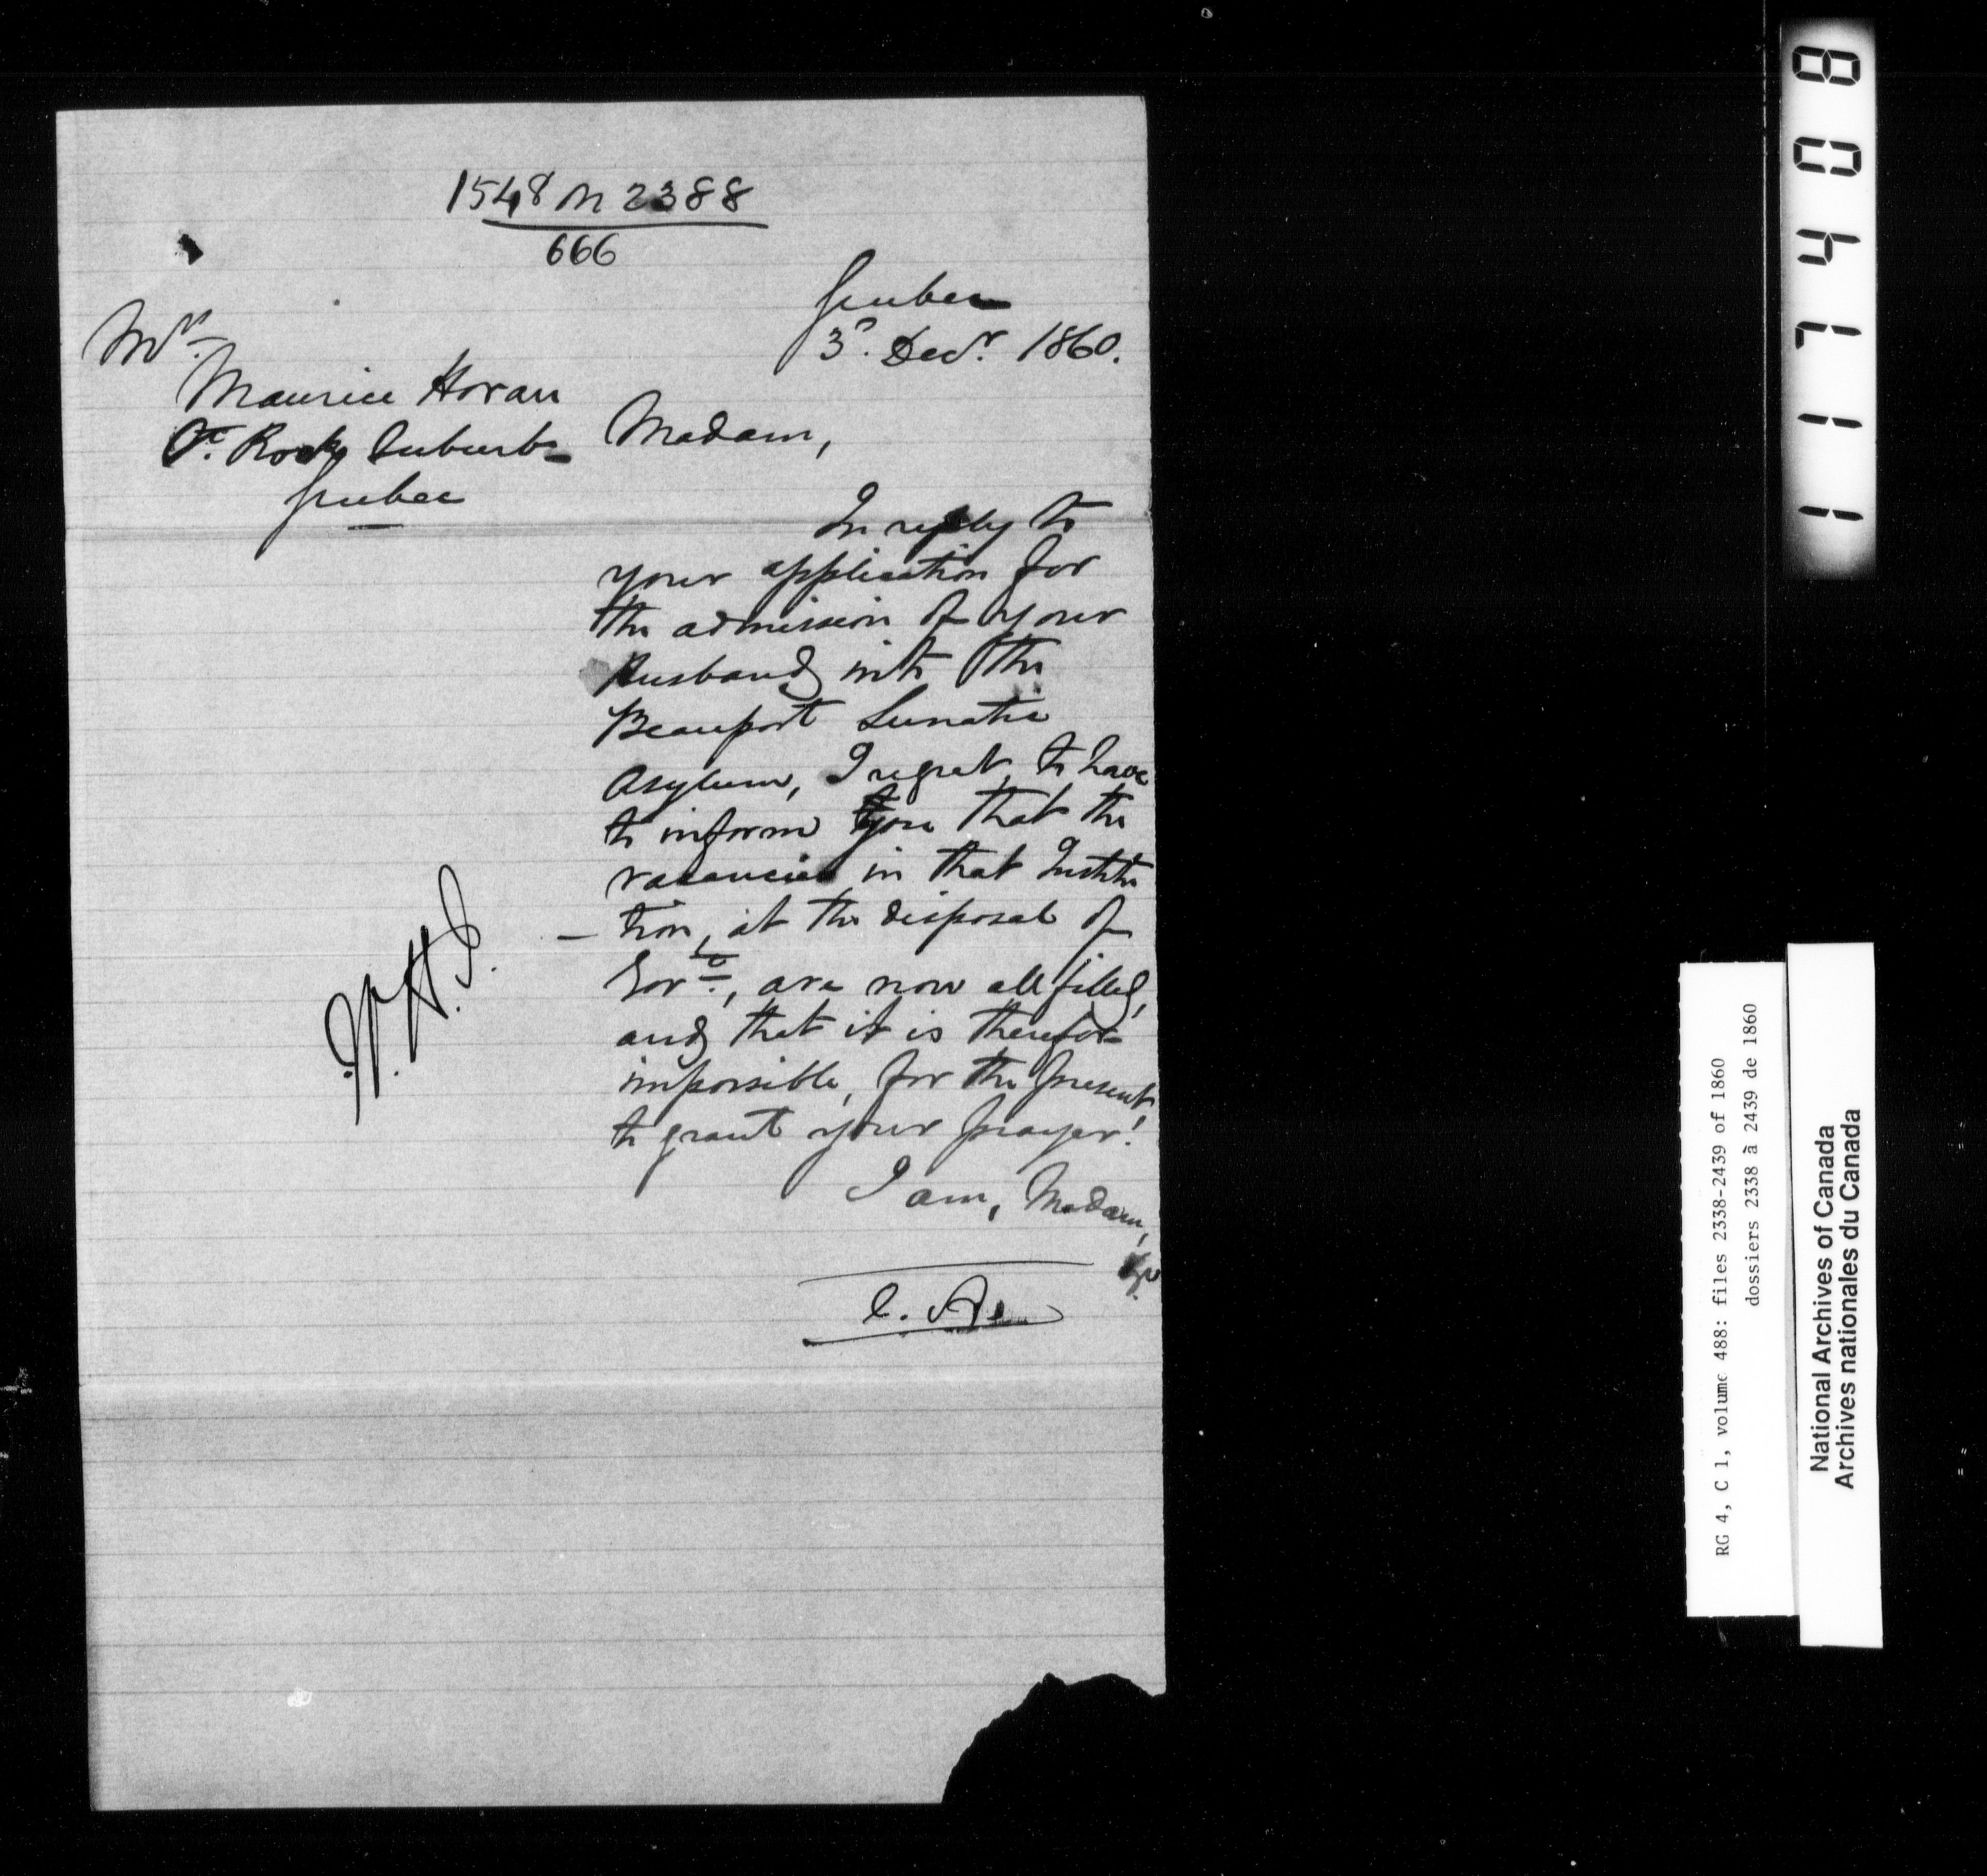 1548 on 2388
666
Quebec
3d. Decr. 1860.
Mrs.
Maurice Horan
St. Rochs Suburbs
Quebec
Madam,
In reply to
your application for
the admission of your
Husband into the
Beauport Lunatic
Asylum, I regret to have
to inform you that the
vacancies in that Institu
-tion, at the disposal of
Govt., are now all filled,
and that it is therefore
impossible, for the present,
to grant your prayer.
I am, Madam,
&c
C. A
W. H. J.
RG 4, C 1, volume 488: files 2338-2439 of 1860
dossiers 2338 à 2439 de 1860
National Archives of Canada
Archives nationales du Canada
1 1 7 4 0 8